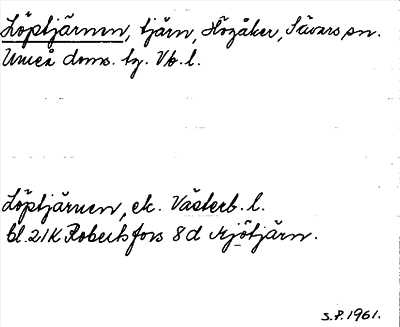 Löptjärnen, tjärn, Högåker, Sävars sn.
Umeå doms. tg. Vb. l.
Löptjärnen, ek. Västerb. l.
bl. 21K Robertsfors 8d Mjötjärn.
S.P. 1961.